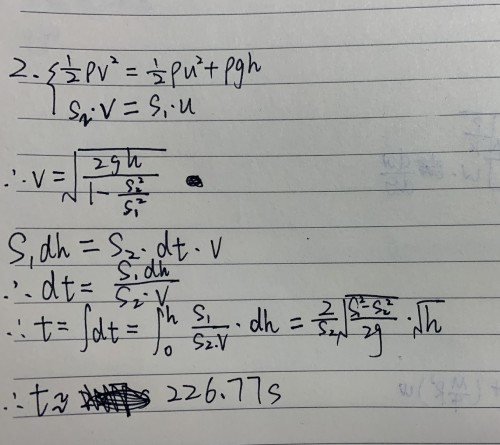 2. { ½ρv² = ½ρu² + ρgh
S₂·v = S₁·u
∴ v = √(2gh / (1 - S₂²/S₁²))
S₁dh = S₂·dt·v
∴ dt = S₁dh / S₂·v
∴ t = ∫dt = ∫₀ʰ S₁/S₂·v · dh = 2/S₂ √((S₁²-S₂²)/2g) · √h
∴ t ≈ 226.77s